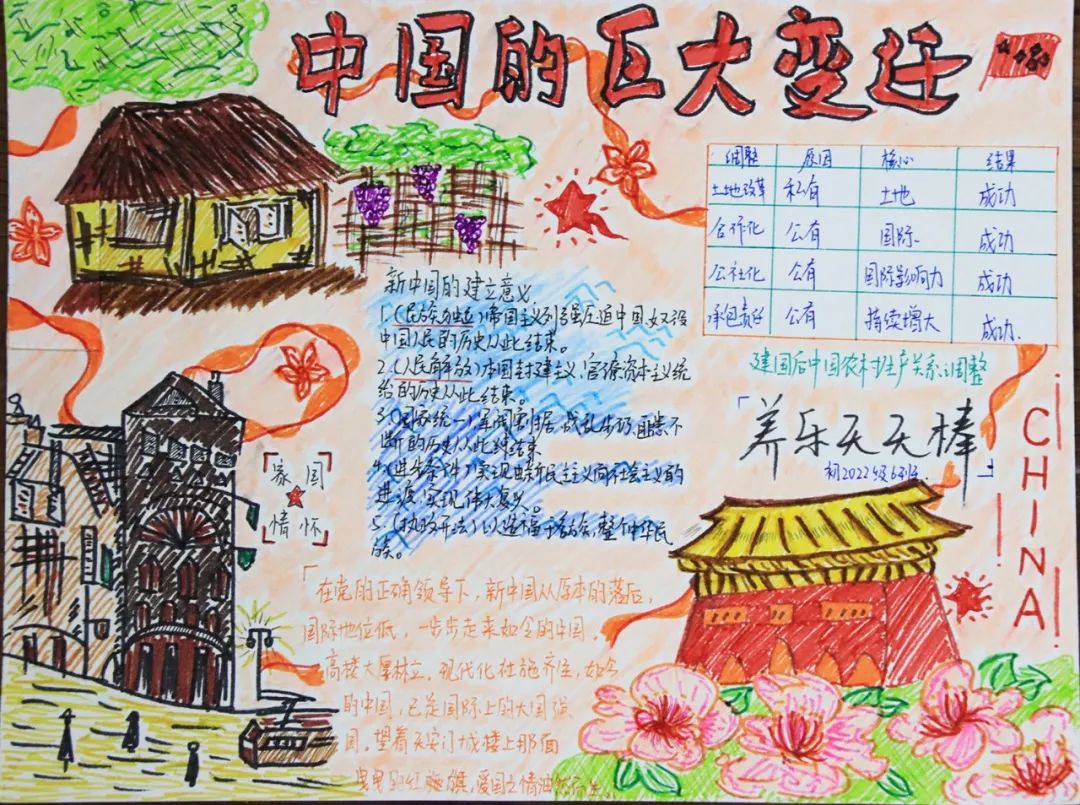 中国的巨大变迁
细题 原因 核心 结果
土地改革 私有 土地 成功
合作化 公有 国际 成功
公社化 公有 国际影响力 成功
承包责任 公有 持续增大 成功
建国后中国农村生产关系调整
新中国的建立意义
1.(民族独立)帝国主义列强压迫中国,奴役
中国人民的历史从此结束。
2.(人民解放)本国封建主义,官僚资本主义统
给的历史从此结束。
3.(国家统一)军阀割据,战乱步扔,匪患不
断的历史从此结束
4.(进步条件)实现由新民主义向社会主义的
进渡,实现伟大复兴。
5.(执政开法)以这不属于政治,整个中华民
族。
「养乐天天棒」
初2022级6班
CHINA
家国
情怀
「在党的正确领导下,新中国从原本的落后,
国际地位低,一步步走来如今的中国,
高楼大厦林立,现代化社施齐全,如今
的中国,已是国际上的大国强
国,望着天安门城楼上那面
曳曳的红旗,爱国之情油然而生。」